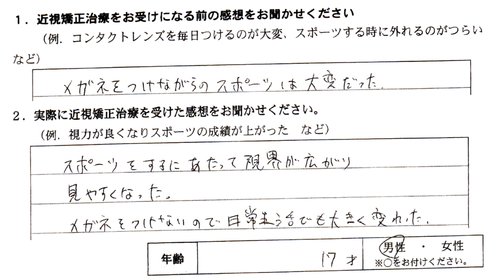 １．近視矯正治療をお受けになる前の感想をお聞かせください
（例．コンタクトレンズを毎日つけるのが大変、スポーツする時に外れるのがつらい
など）
メガネをつけながらのスポーツは大変だった。
２．実際に近視矯正治療を受けた感想をお聞かせください。
（例．視力が良くなりスポーツの成績が上がった　など）
スポーツをするにあたって視界が広がり
見やすくなった。
メガネをつけないので日常生活でも大きく変れた。
年齢 17才 男性 ・ 女性
※○をお付けください。